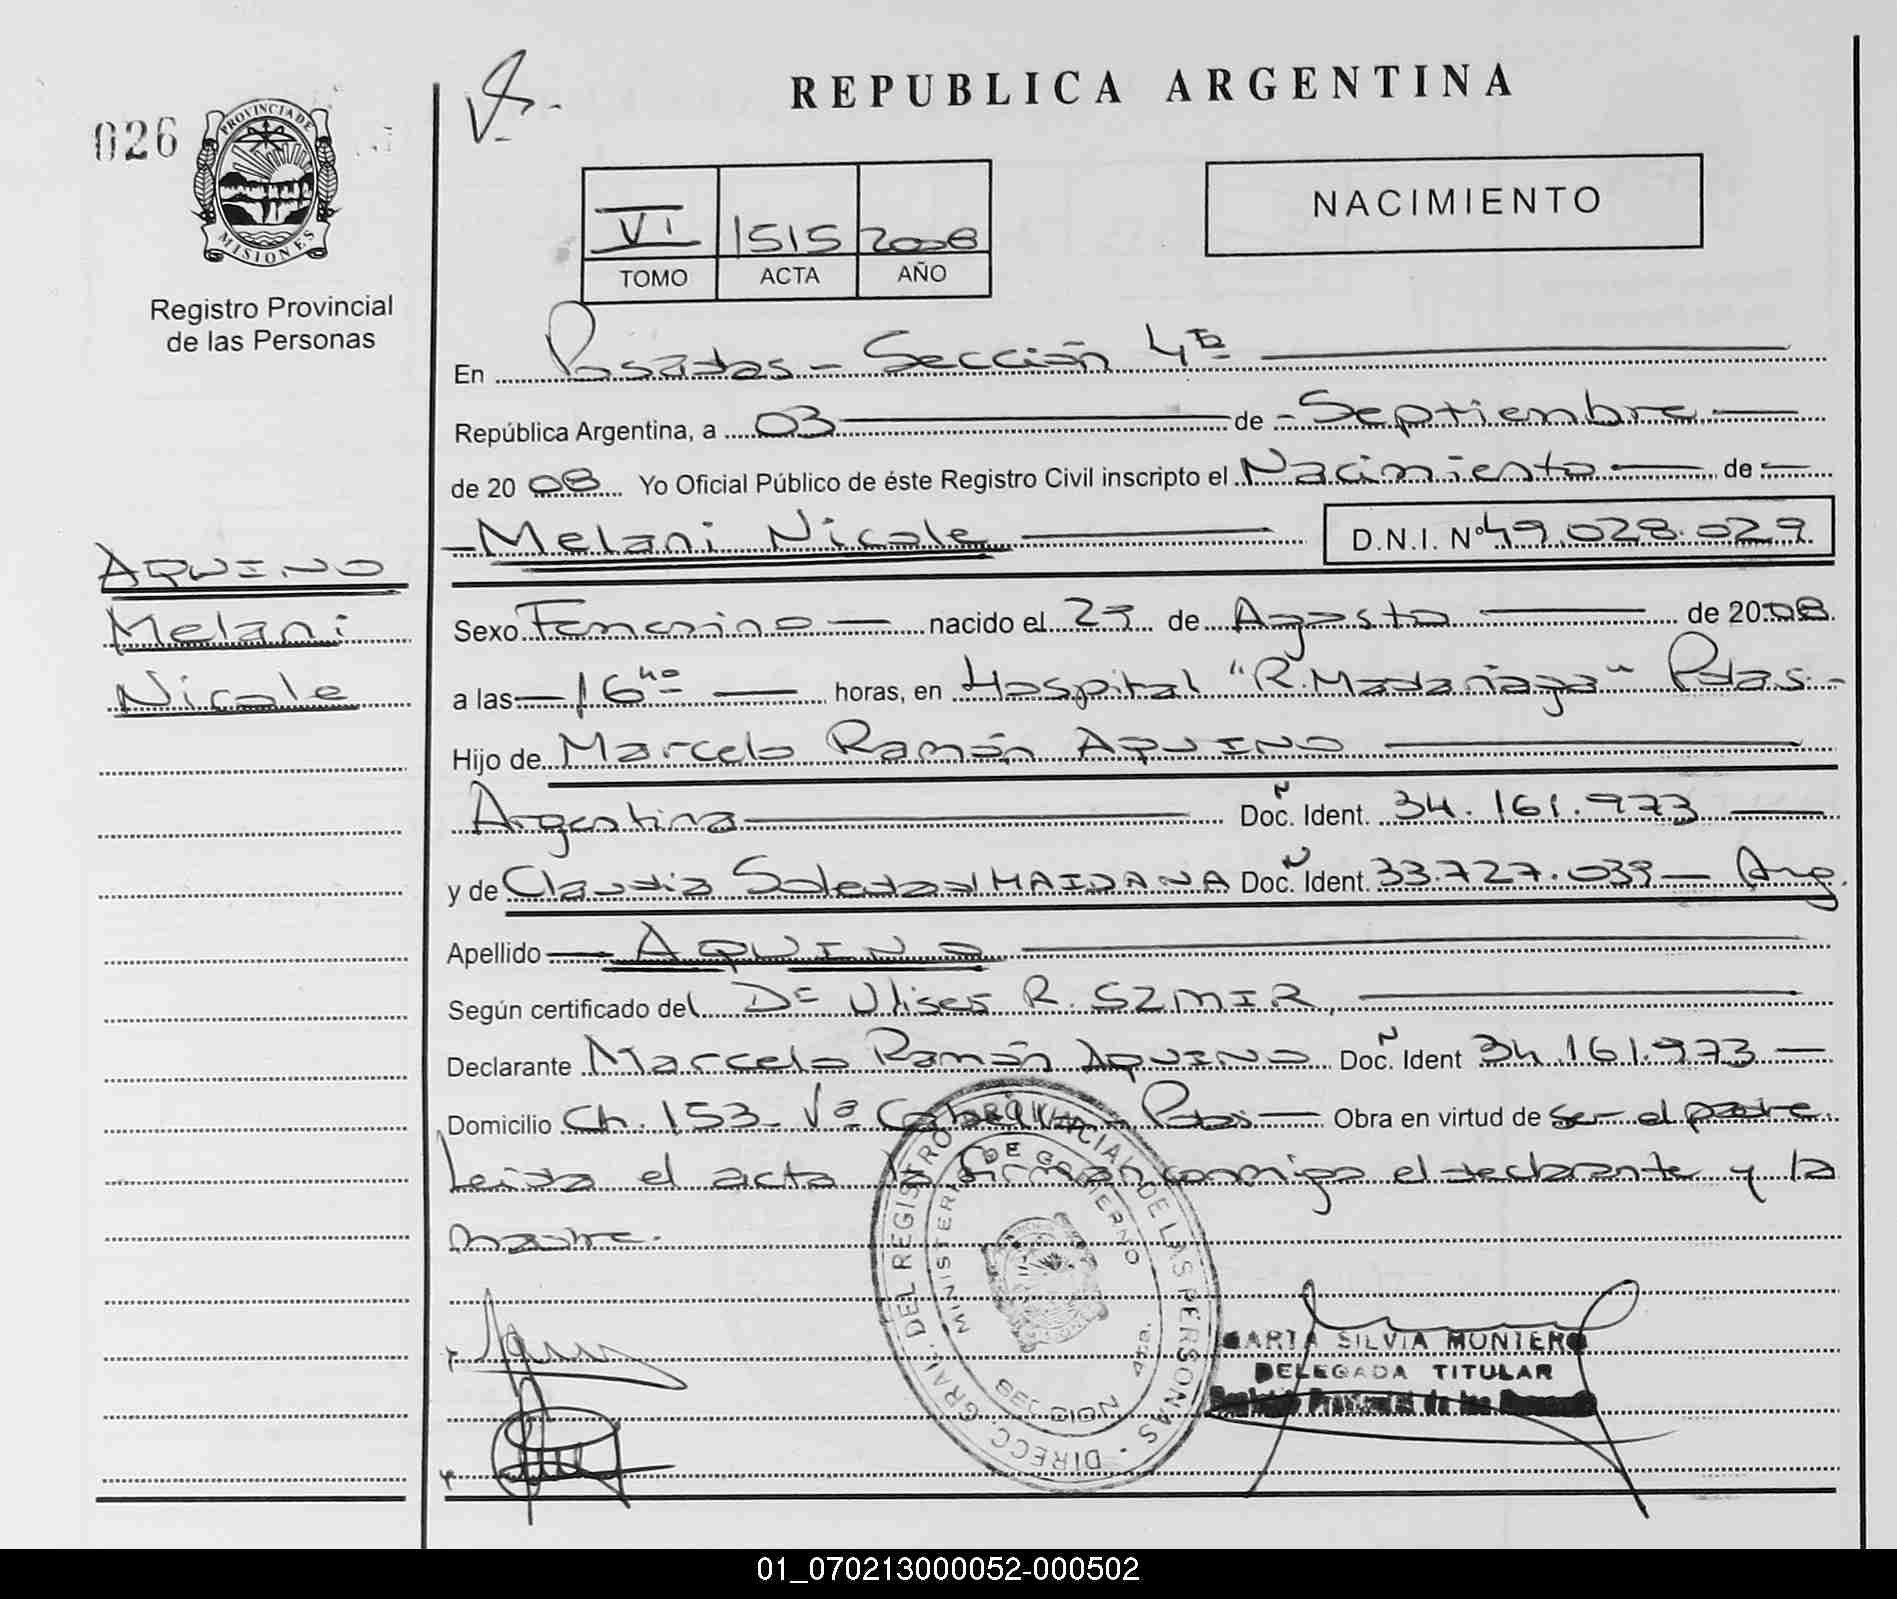 REPUBLICA ARGENTINA
026
PROVINCIA DE
MISIONES
Registro Provincial
de las Personas
NACIMIENTO
VI 1515 2008
TOMO ACTA AÑO
En Posadas - Sección 4ta
República Argentina, a 03 de - Septiembre
de 20 08 Yo Oficial Público de éste Registro Civil inscripto el Nacimiento de
- Melani Nicole D.N.I. Nº 49.028.029
AQUINO
Melani
Nicole
Sexo Femenino nacido el 29 de Agosto de 20 08
a las 16 hs horas, en Hospital "R. Madariaga" Pdas.-
Hijo de Marcelo Ramón AQUINO
Argentina Doc. N Ident. 34.161.973
y de Claudia Soledad MAIDANA Doc. N Ident. 33.727.039 - Arg.
Apellido AQUINO
Según certificado del Dr Ulises R. SZMIR
Declarante Marcelo Ramón AQUINO Doc. N Ident 34.161.973 -
Domicilio Ch. 153 - Vª Cabello - Pdas - Obra en virtud de ser el padre.
Leida el acta la firman conmigo el declarante y la
madre.
DIRECC. GRAL. DEL REGISTRO PROVINCIAL DE LAS PERSONAS -
MINISTERIO DE GOBIERNO
SECCION 4ta.
MARTA SILVIA MONTERO
DELEGADA TITULAR
Registro Provincial de las Personas
01_070213000052-000502